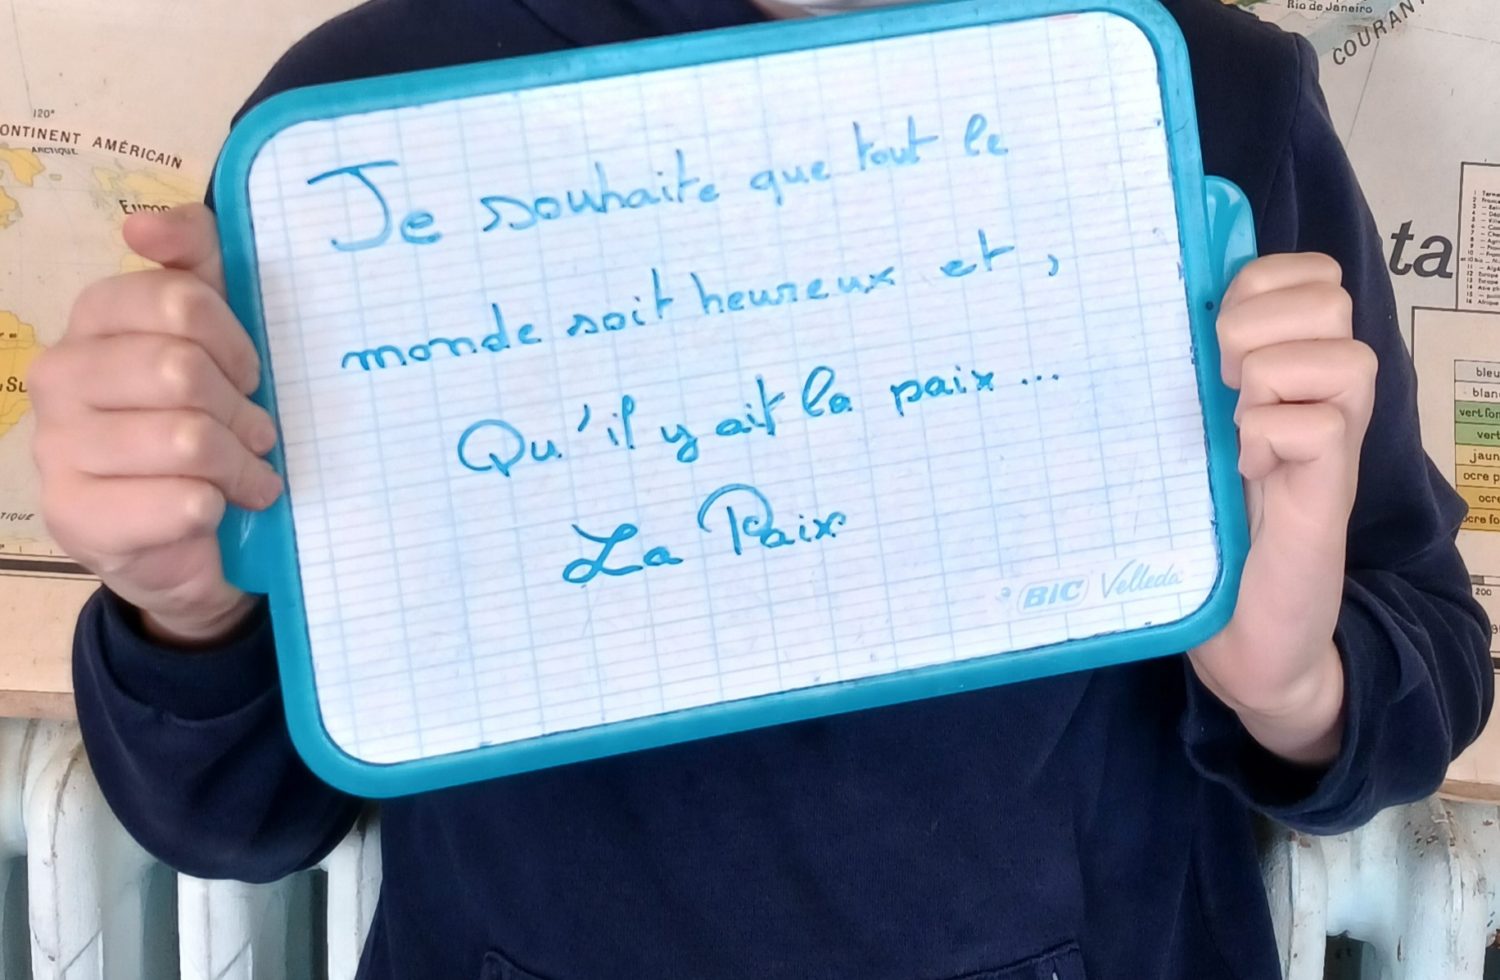 Je souhaite que tout le
monde soit heureux et,
Qu'il y ait la paix...
La Paix
BIC Velleda
Rio de Janeiro
COURANT
120°
ONTINENT AMÉRICAIN
ARCTIQUE
Europ
Su
TIQUE
ta
bleu
blan
vert for
vert
jaun
ocre p
ocre
ocre fo
200